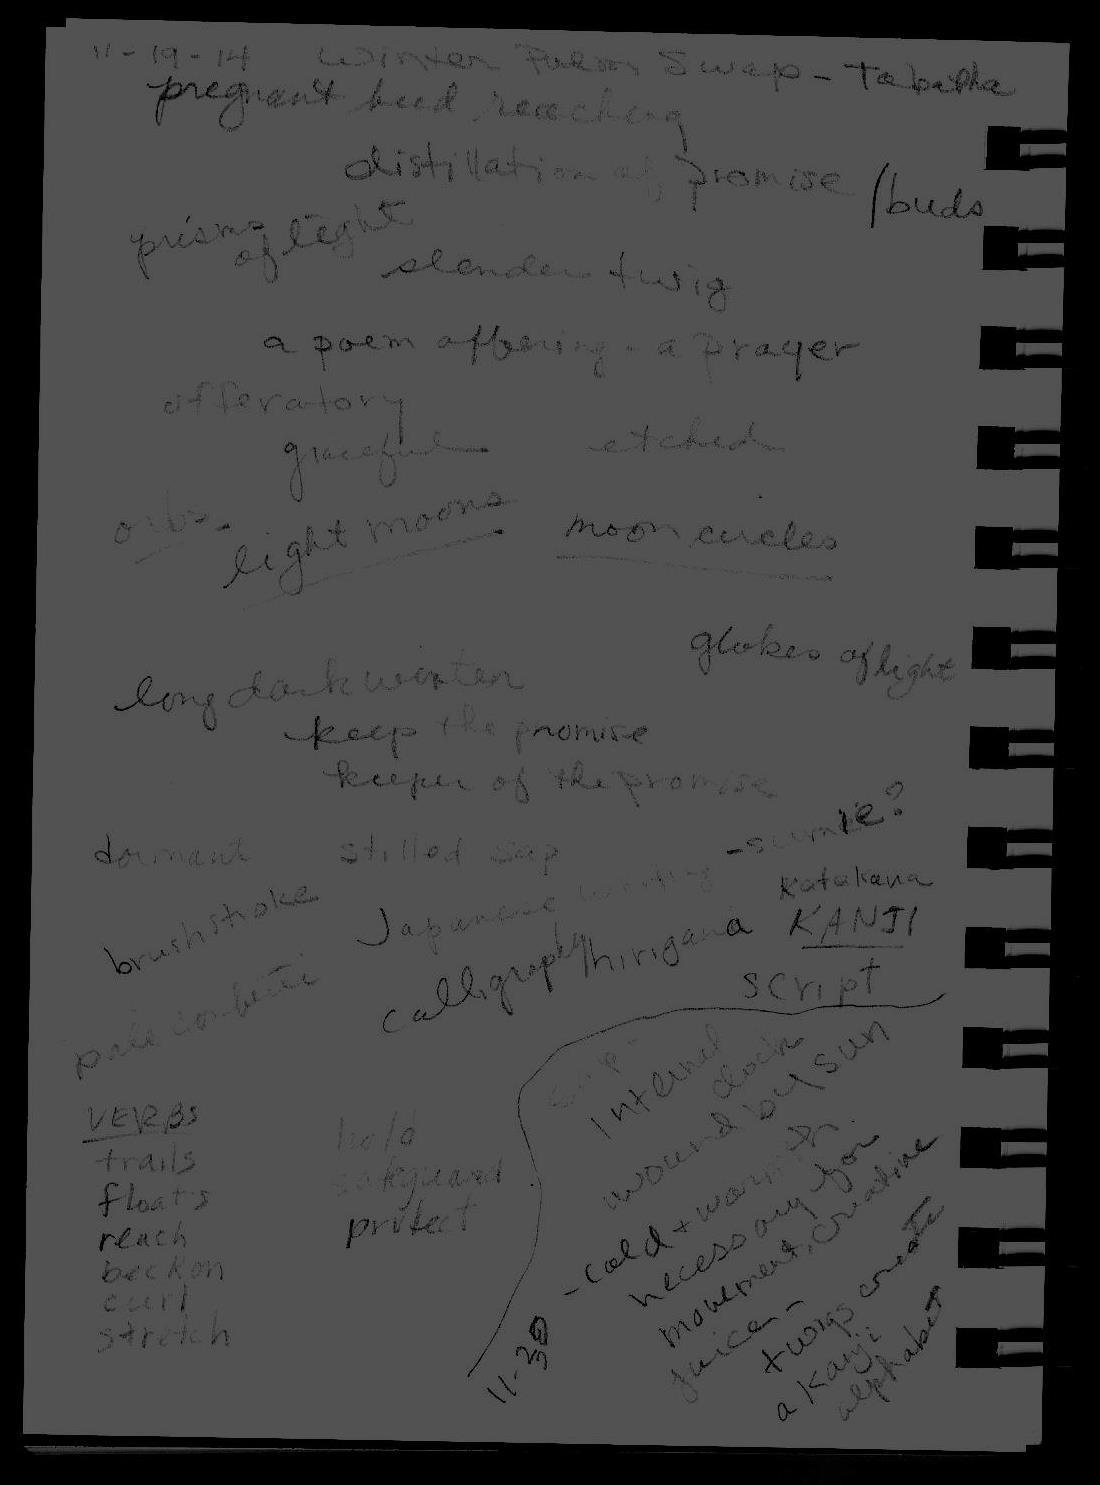 11-19-14 Winter Poem Swap - Tabitha
pregnant bud reaching
distillation of promise / buds
prisms
of light
slender twig
a poem offering - a prayer
offeratory
graceful etched
orbs -
light moons moon circles
globes of light
long dark winter
keep the promise
keeper of the promise
dormant stilled sap
brushstroke Japanese writing - sumie?
Katakana
calligraphy/hirigana KANJI
script
pale confetti
VERBS
trails
floats
reach
beckon
curl
stretch
hold
safeguard
protect
11-30
sap -
internal
clock
wound by sun
- cold + warmth
necessary for
movement, creative
juice -
twigs create
a kanji
alphabet